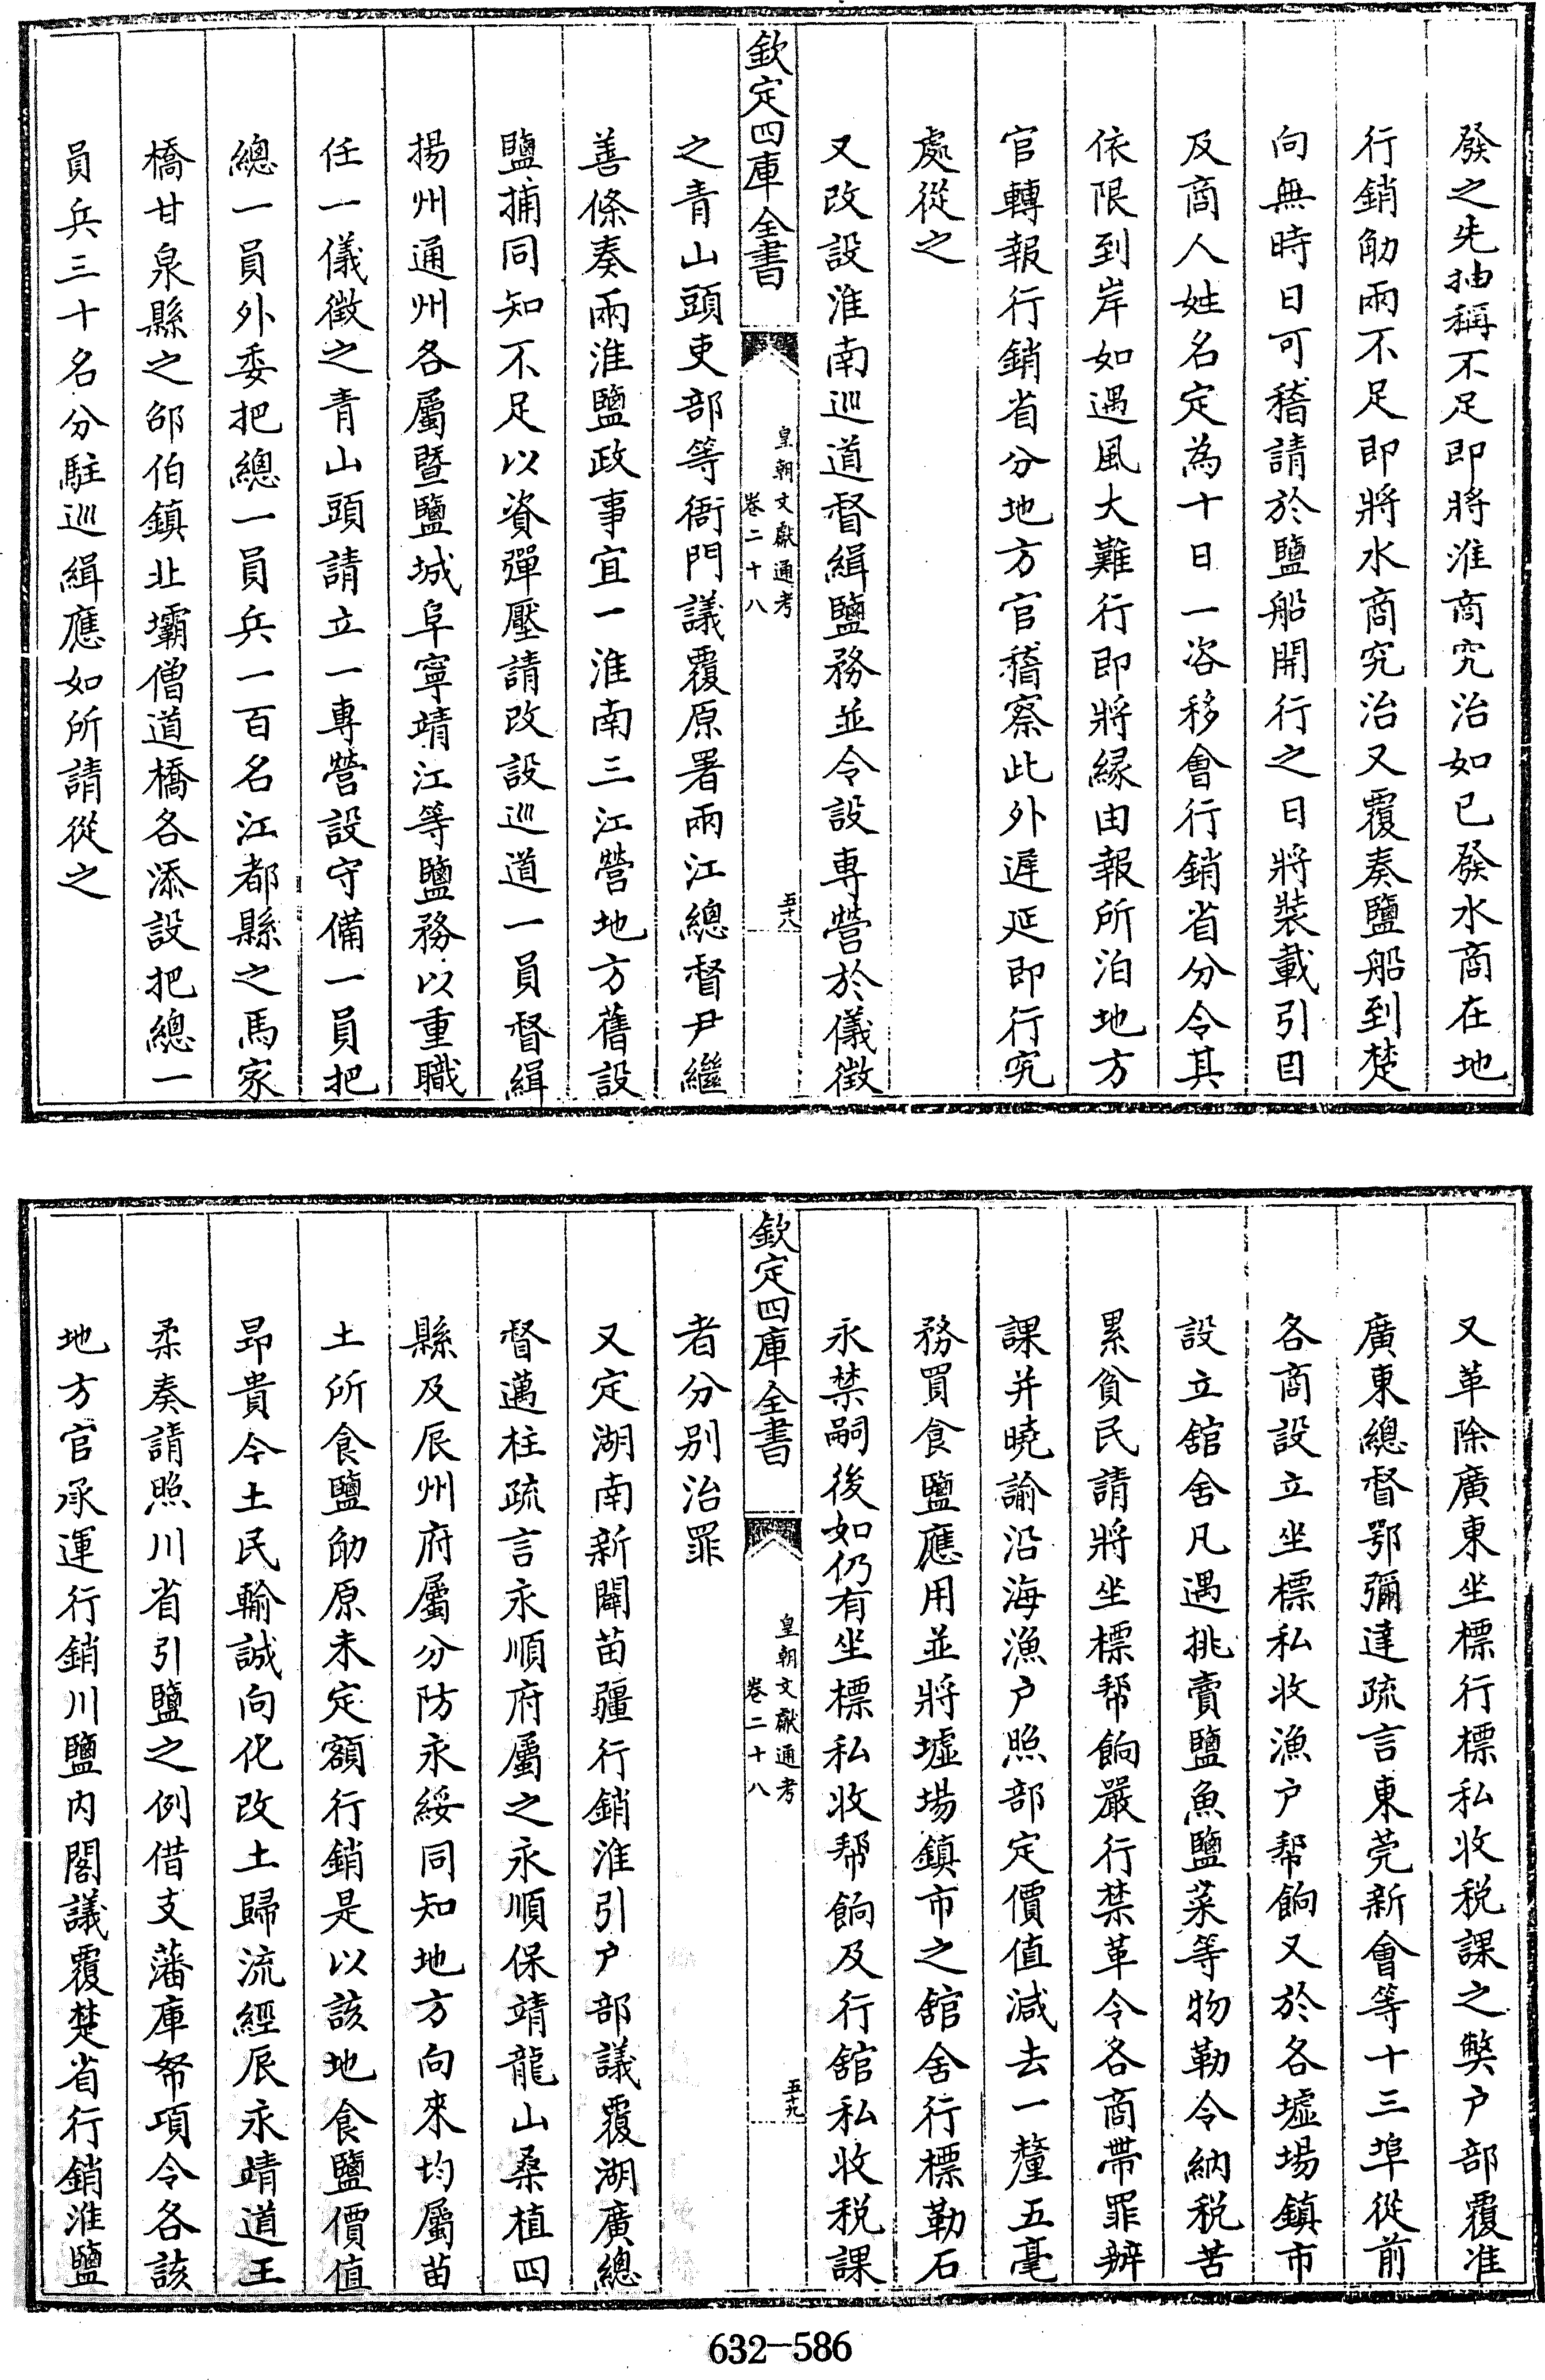 發之先抽稱不足即將淮商究治如已發水商在地
行銷觔兩不足即將水商究治又覆奏鹽船到楚
向無時日可稽請於鹽船開行之日將裝載引目
及商人姓名定為十日一咨移會行銷省分令其
依限到岸如遇風大難行即將緣由報所泊地方
官轉報行銷省分地方官稽察此外遲延即行究
處從之
又改設淮南巡道督緝鹽務並令設專營於儀徵
欽定四庫全書
皇朝文獻通考
卷二十八
五十八
之青山頭吏部等衙門議覆原署兩江總督尹繼
善條奏兩淮鹽政事宜一淮南三江營地方舊設
鹽捕同知不足以資彈壓請改設巡道一員督緝
揚州通州各屬暨鹽城阜寧靖江等鹽務以重職
任一儀徵之青山頭請立一專營設守備一員把
總一員外委把總一員兵一百名江都縣之馬家
橋甘泉縣之邵伯鎮北壩僧道橋各添設把總一
員兵三十名分駐巡緝應如所請從之
又革除廣東坐標行標私收稅課之弊户部覆准
廣東總督鄂彌達疏言東莞新會等十三埠從前
各商設立坐標私收漁户帮餉又於各墟場鎮市
設立舘舍凡遇挑賣鹽魚鹽菜等物勒令納稅苦
累貧民請將坐標帮餉嚴行禁革令各商帶罪辦
課并曉諭沿海漁户照部定價值減去一釐五毫
務買食鹽應用並將墟場鎮市之舘舍行標勒石
永禁嗣後如仍有坐標私收帮餉及行舘私收稅課
欽定四庫全書
皇朝文獻通考
卷二十八
五十九
者分别治罪
又定湖南新闢苗疆行銷淮引户部議覆湖廣總
督邁柱疏言永順府屬之永順保靖龍山桑植四
縣及辰州府屬分防永綏同知地方向來均屬苗
土所食鹽觔原未定額行銷是以該地食鹽價值
昂貴今土民輸誠向化改土歸流經辰永靖道王
柔奏請照川省引鹽之例借支藩庫帑項令各該
地方官承運行銷川鹽内閣議覆楚省行銷淮鹽
632-586